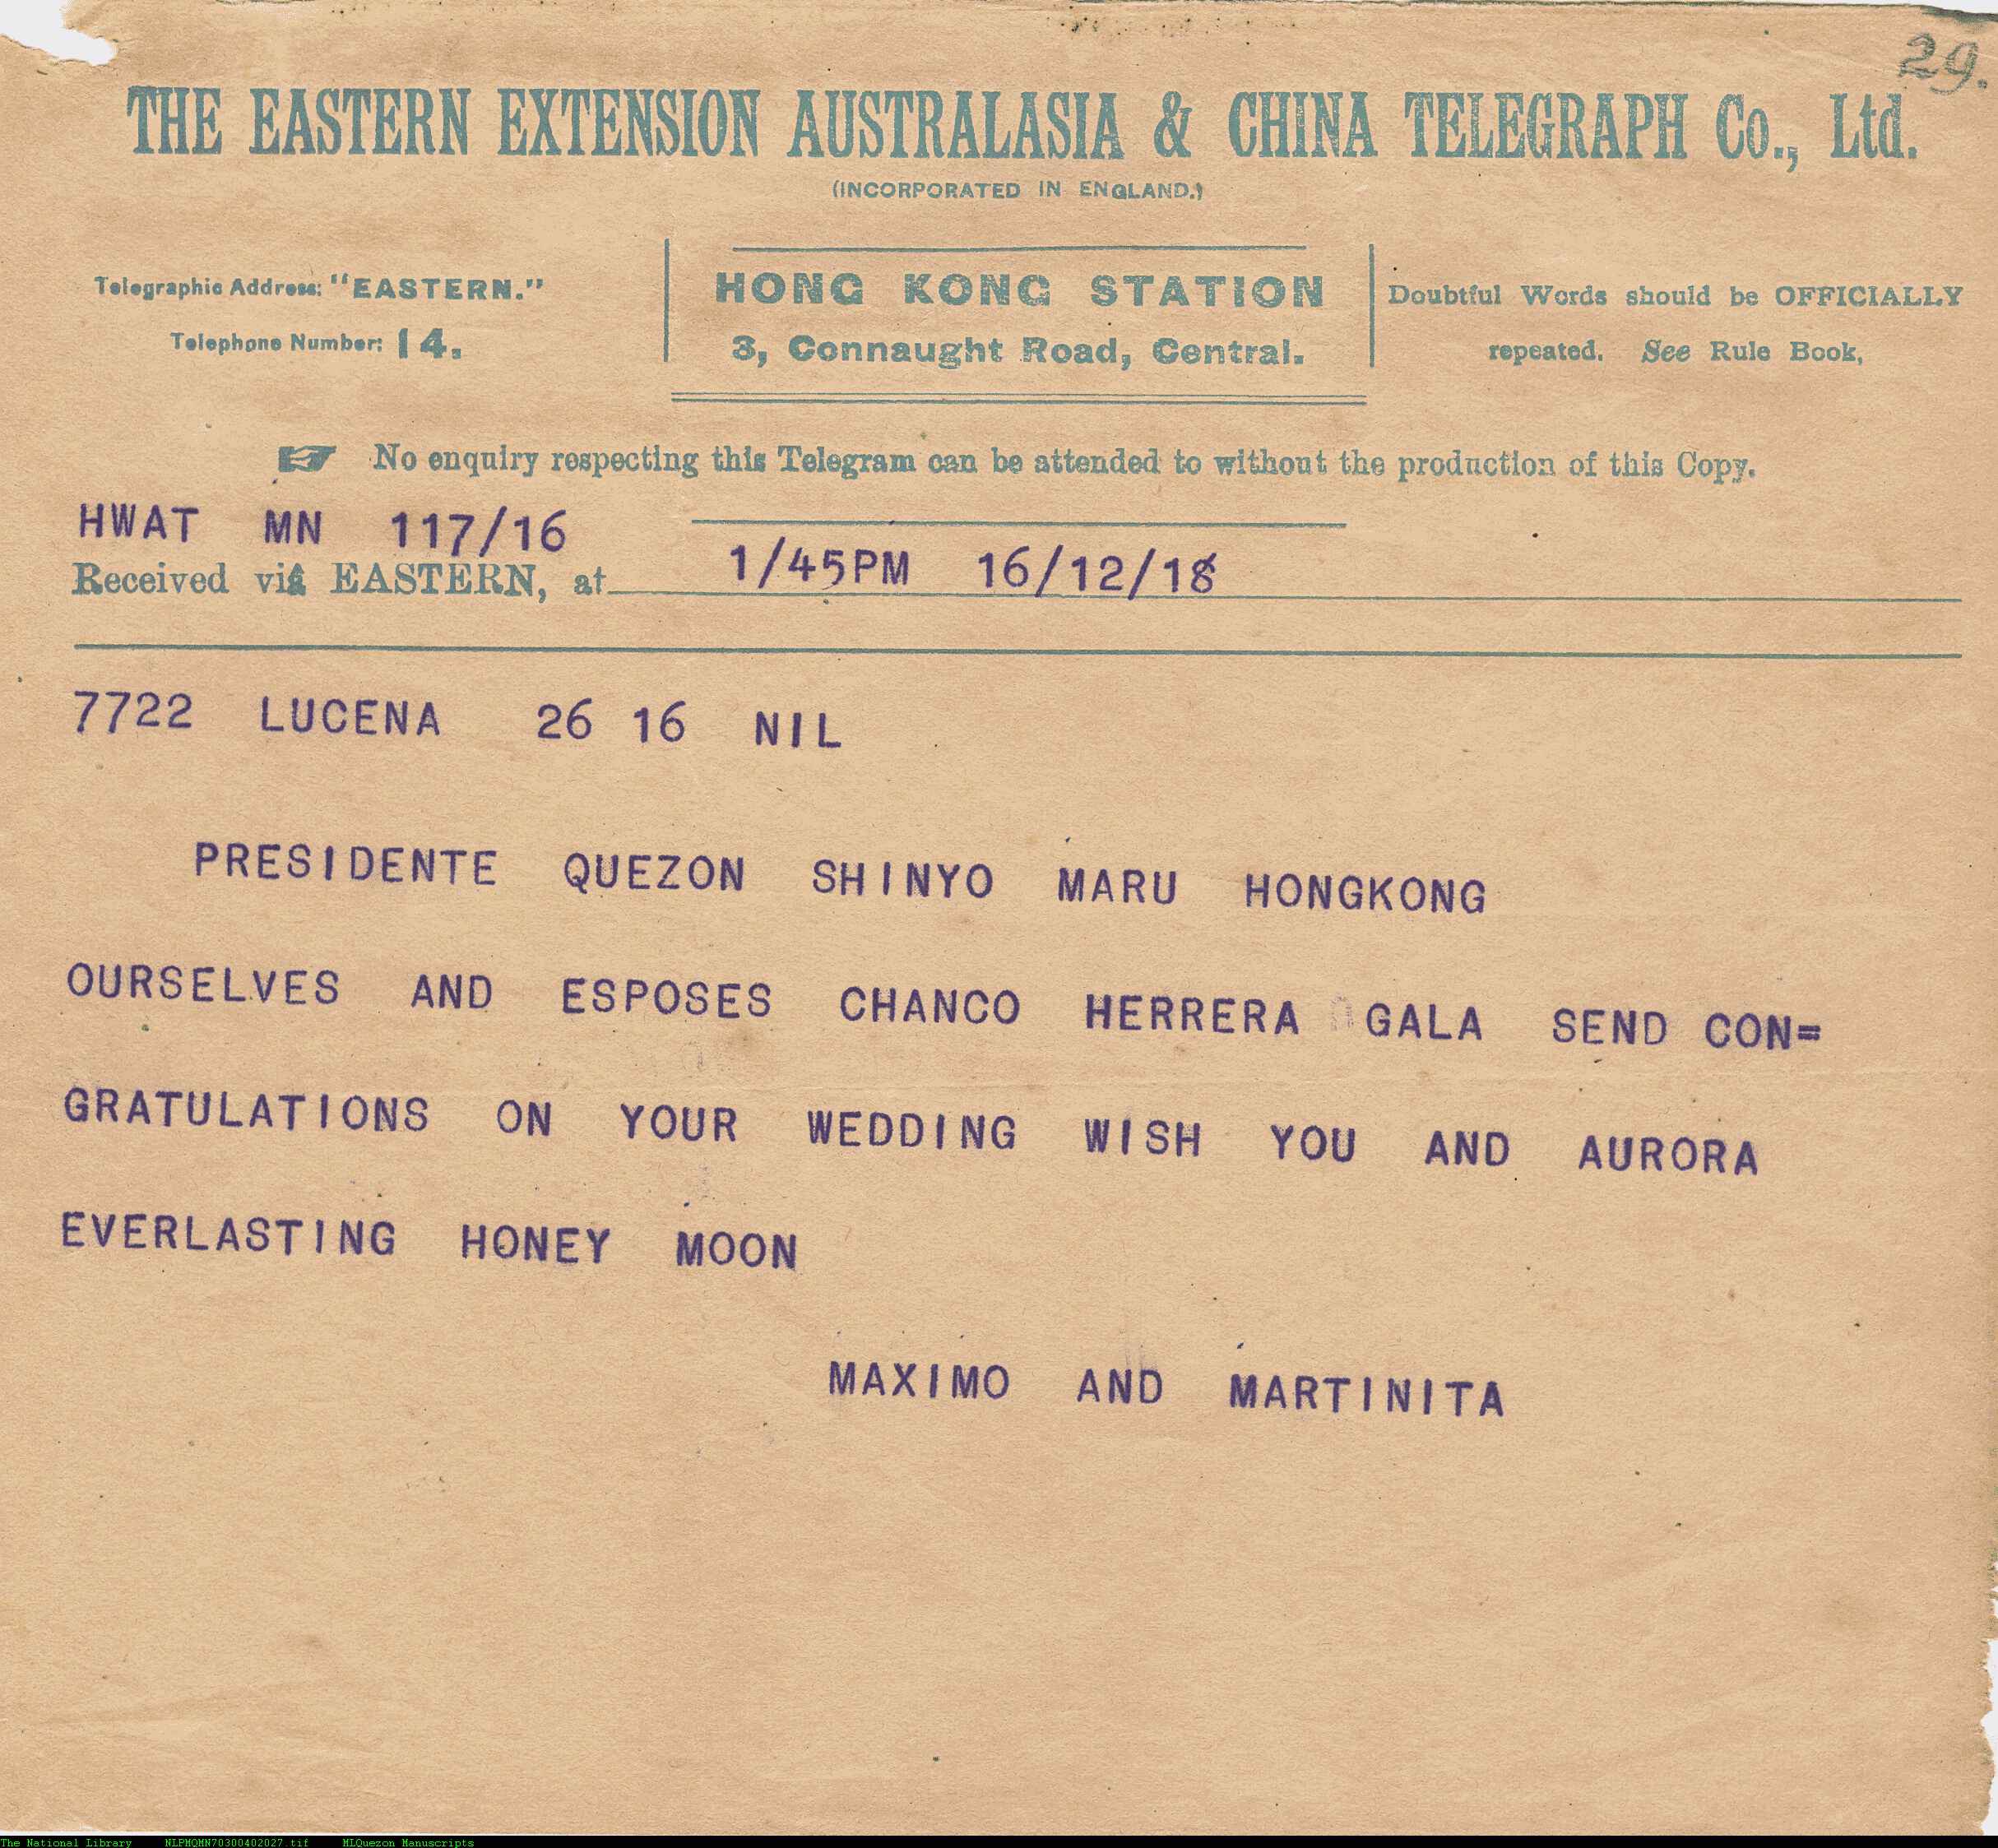 29.
THE EASTERN EXTENSION AUSTRALASIA & CHINA TELEGRAPH Co., Ltd.
(INCORPORATED IN ENGLAND.)
Telegraphic Address: "EASTERN."
Telephone Number: 14.
HONG KONG STATION
3, Connaught Road, Central.
Doubtful Words should be OFFICIALLY
repeated. See Rule Book,
☞ No enquiry respecting this Telegram can be attended to without the production of this Copy.
HWAT MN 117/16
Received viâ EASTERN, at 1/45PM 16/12/18
7722 LUCENA 26 16 NIL
PRESIDENTE QUEZON SHINYO MARU HONGKONG
OURSELVES AND ESPOSES CHANCO HERRERA GALA SEND CON=
GRATULATIONS ON YOUR WEDDING WISH YOU AND AURORA
EVERLASTING HONEY MOON
MAXIMO AND MARTINITA
The National Library NLPMQMN70300402027.tif MLQuezon Manuscripts